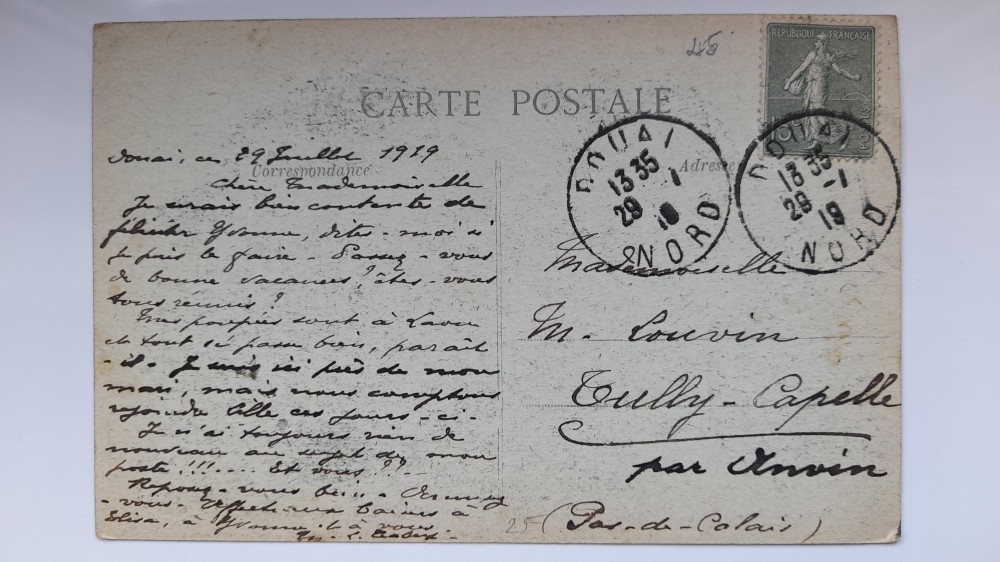 CARTE POSTALE
Correspondance
Adresse
RÉPUBLIQUE FRANÇAISE
15
DOUAI
13 35
29 - 1
19
NORD
DOUAI
13 35
29 - 1
19
NORD
Douai, ce 29 Juillet 1919
Chère Mademoiselle
Je serais bien contente de
féliciter Yvonne, dites-moi si
je puis le faire - Passez-vous
de bonne vacances, êtes-vous
tous réunis ?
Mes poupées sont à
et tout se passe bien, paraît
-il. Je suis ici près de mon
mari, mais nous comptons
rejoindre Lille ces jours-ci.
Je n'ai toujours rien de
nouveau au sujet de mon
poste !!! .... Et vous ??
Reposez-vous bien -
-vous - Affectueux baisers à
Elisa, à Yvonne et à vous.
Mademoiselle
M. Louvin
Tilly-Capelle
par Anvin
(Pas-de-Calais)
25